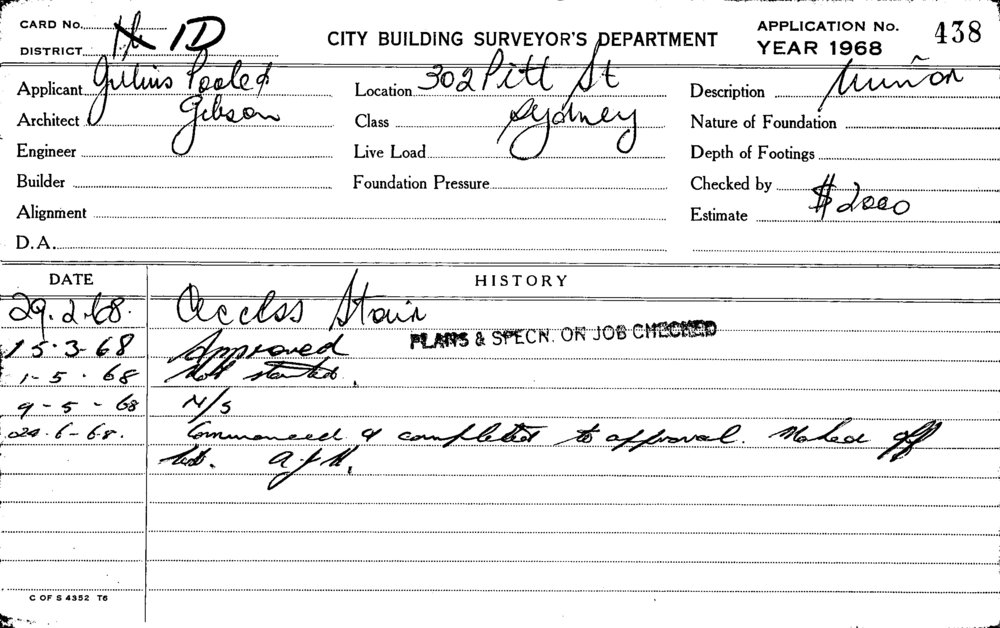 CARD No. 1D
DISTRICT
CITY BUILDING SURVEYOR'S DEPARTMENT
APPLICATION No. 438
YEAR 1968
Applicant Julius Poole &
Architect Gibson
Engineer
Builder
Alignment
D.A.
Location 302 Pitt St
Class Sydney
Live Load
Foundation Pressure
Description Minor
Nature of Foundation
Depth of Footings
Checked by
Estimate $2000
DATE HISTORY
29.2.68. Access Stair
PLANS & SPECN. ON JOB CHECKED
15-3-68 Approved
1-5-68 Not started.
9-5-68 N/S
20-6-68. Commenced & completed to approval. Marked off
list.
C OF S 4352 T6